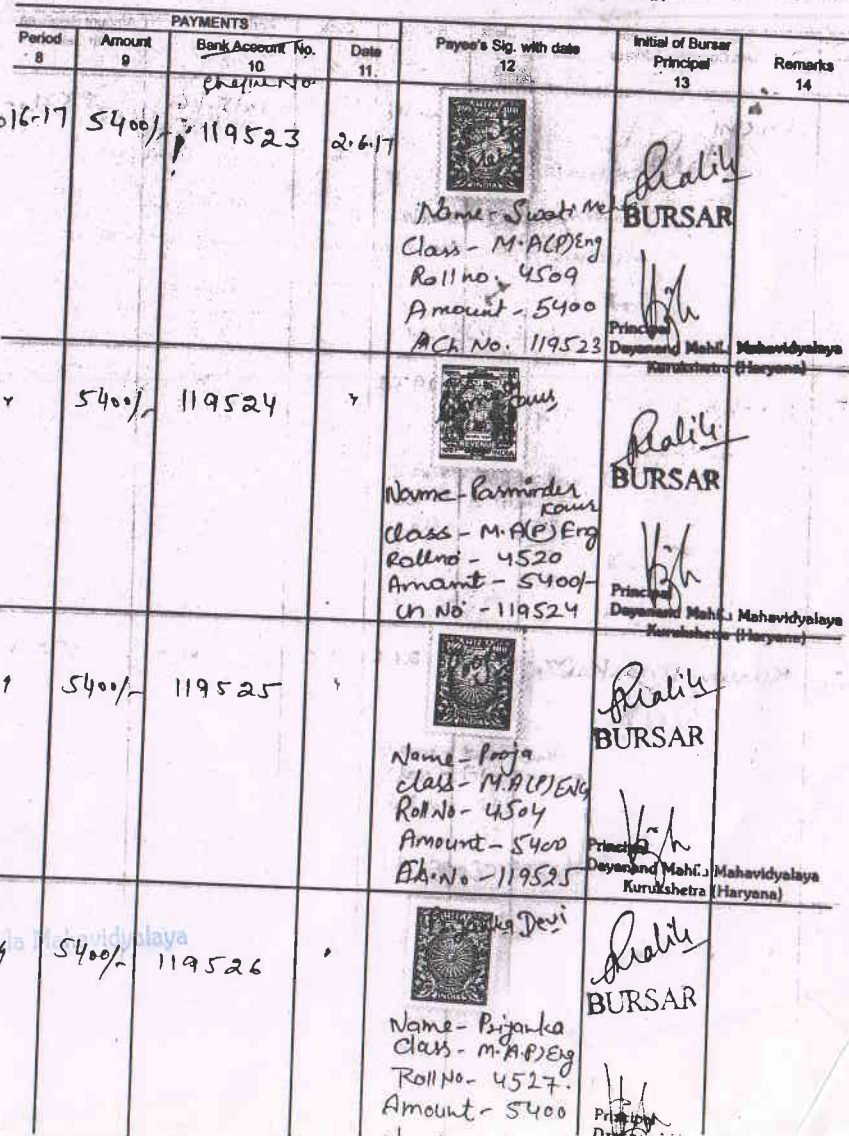 PAYMENTS
Period Amount Bank Account No. Date Payee's Sig. with date Initial of Bursar Principal Remarks
8 9 10 11. 12 13 14
016-17 5400/- 119523 2.6.17
INDIA
Name - Swati
Class - M.A(P)Eng
Roll no. 4509
Amount - 5400
Ch No. 119523
BURSAR
Principal
Dayanand Mahila Mahavidyalaya
Kurukshetra (Haryana)
5400/- 119524 "
REVENUE INDIA
Name - Parminder
Kaur
Class - M.A(P) Eng
Rollno - 4520
Amount - 5400/-
Ch No - 119524
BURSAR
Principal
Dayanand Mahila Mahavidyalaya
Kurukshetra (Haryana)
5400/- 119525 "
Pooja
Name - Pooja
Class - M.A(P) ENG
Roll No - 4504
Amount - 5400
Ch. No - 119525
BURSAR
Principal
Dayanand Mahila Mahavidyalaya
Kurukshetra (Haryana)
la Mahavidyalaya
5400/- 119526
Priyanka Devi
INDIA
Name - Priyanka
Class - M.A.(P) Eng
Roll No - 4527.
Amount - 5400
BURSAR
Principal